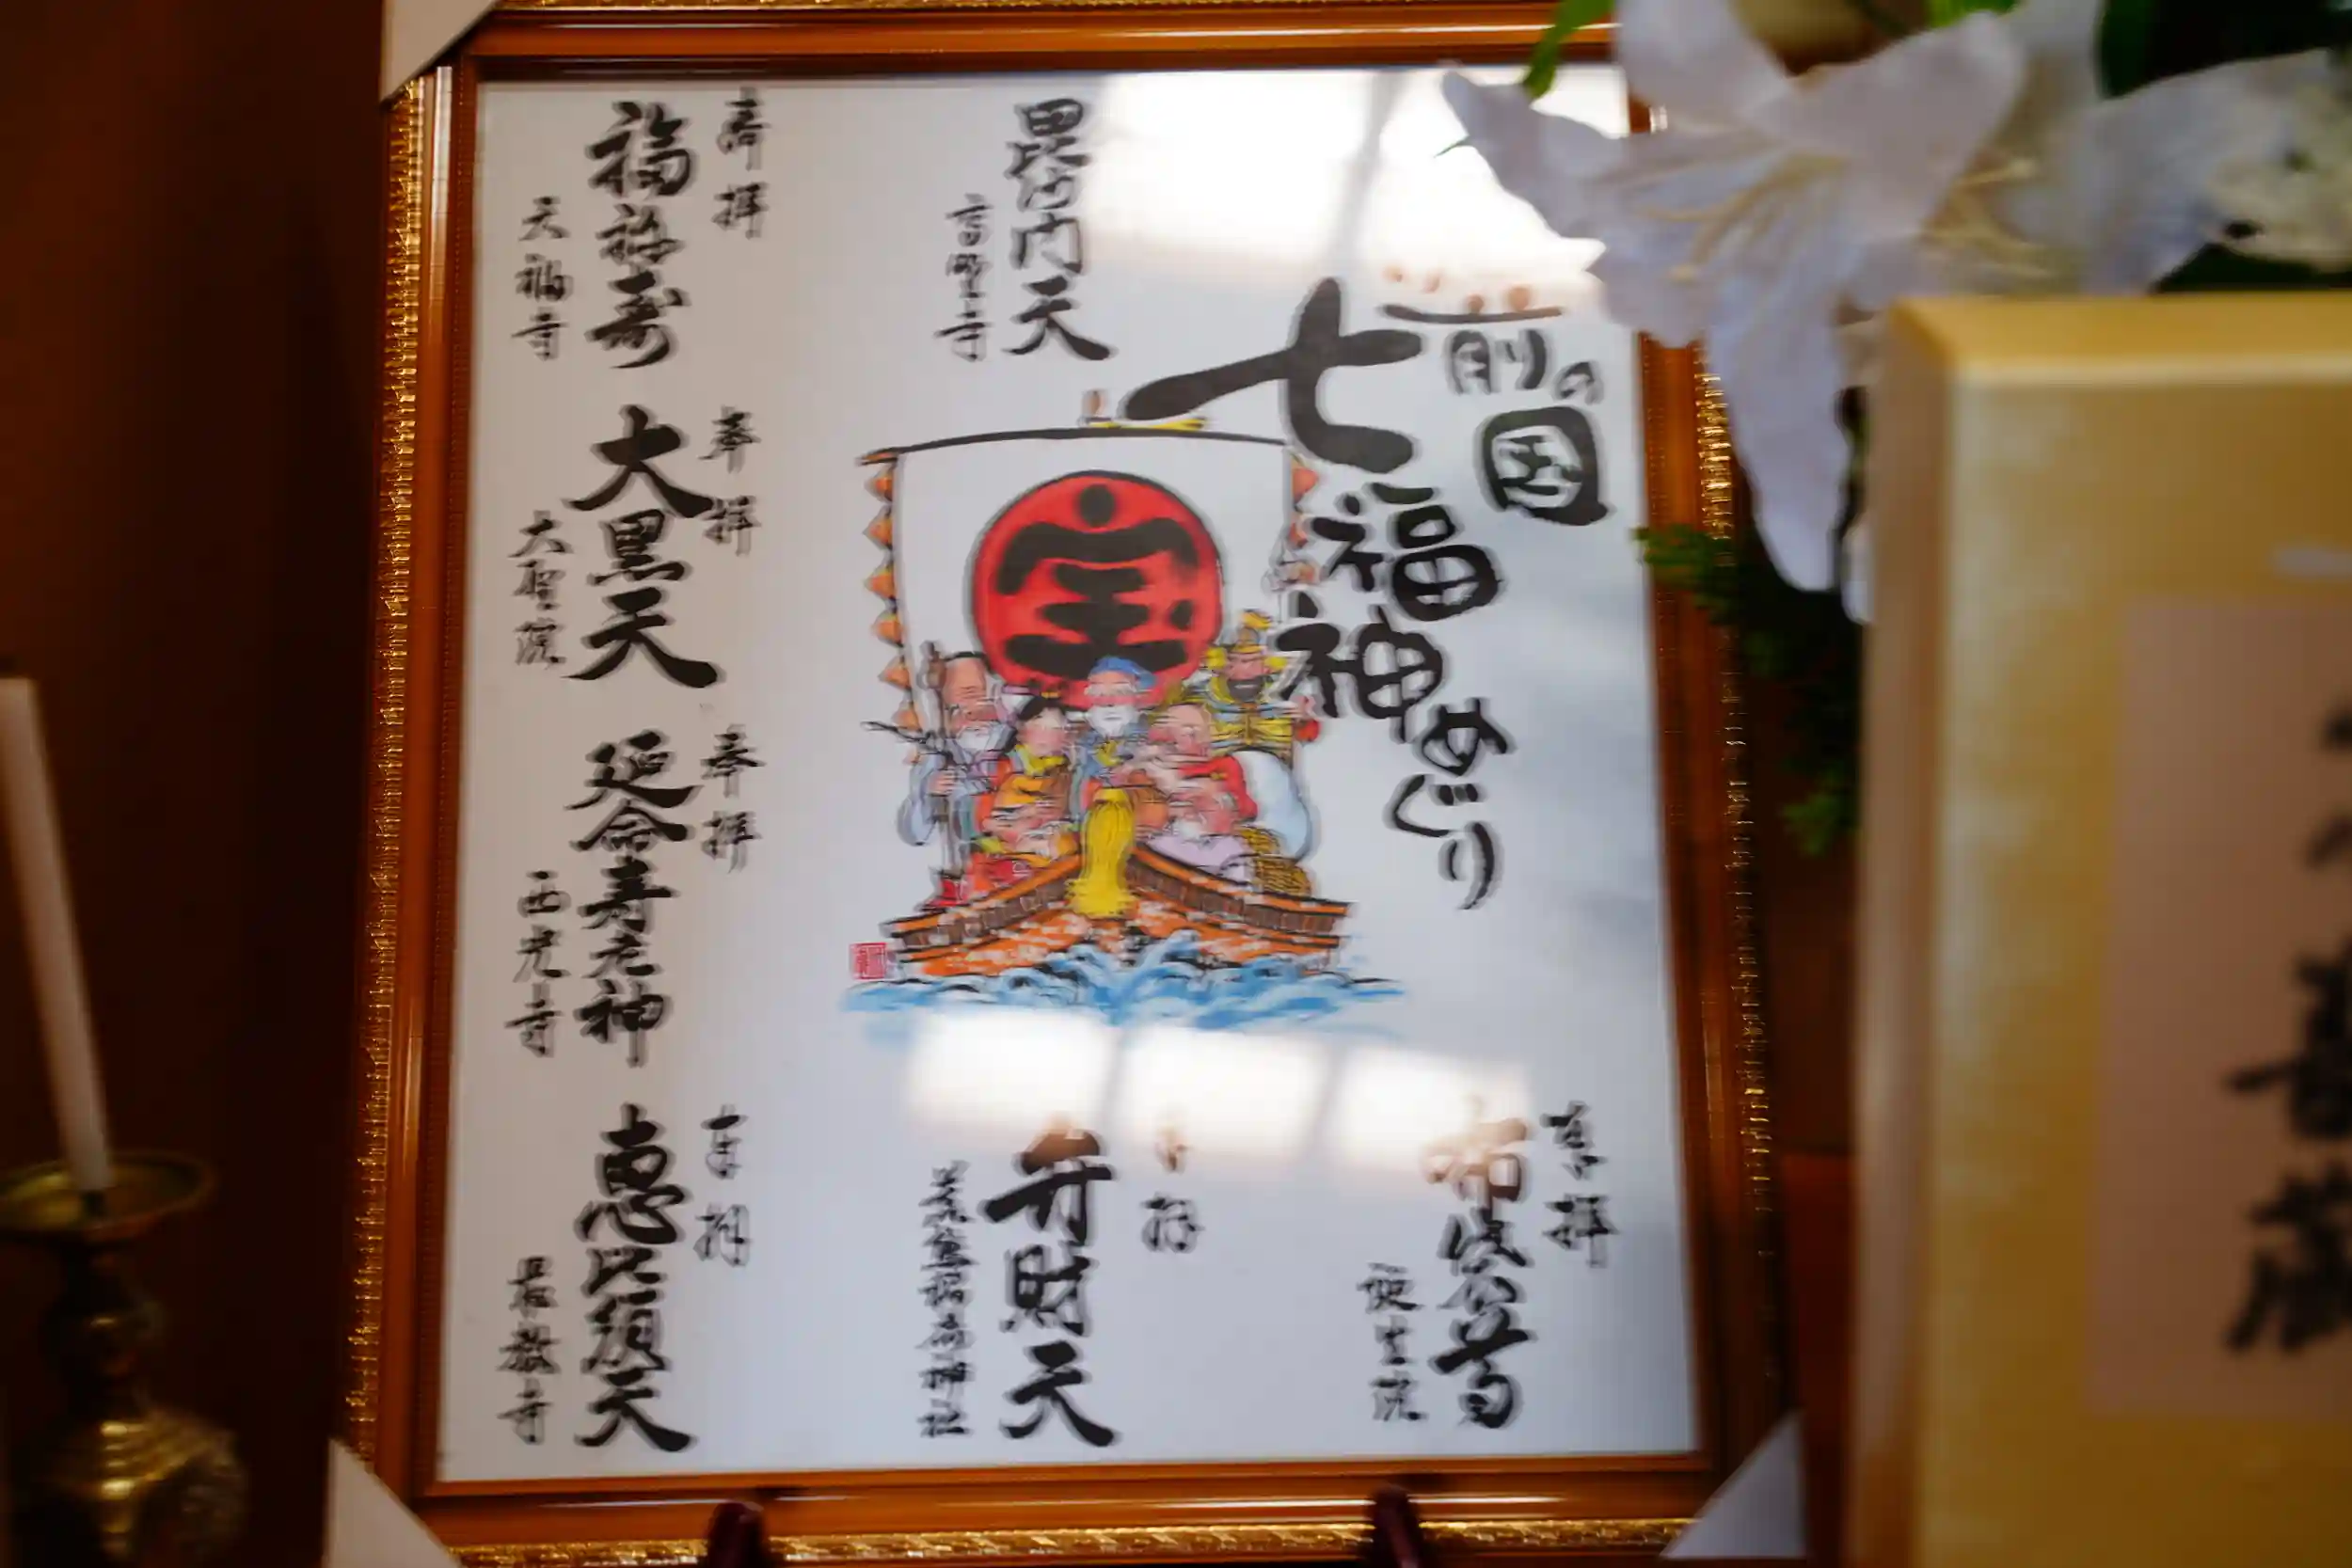 前の国
七福神めぐり
宝
毘沙門天
吉野寺
奉拝
福禄寿
天福寺
奉拝
大黒天
大聖院
奉拝
延命寿老神
西光寺
奉拝
恵比須天
最教寺
奉拝
弁財天
稲荷神社
奉拝
布袋尊
誕生院